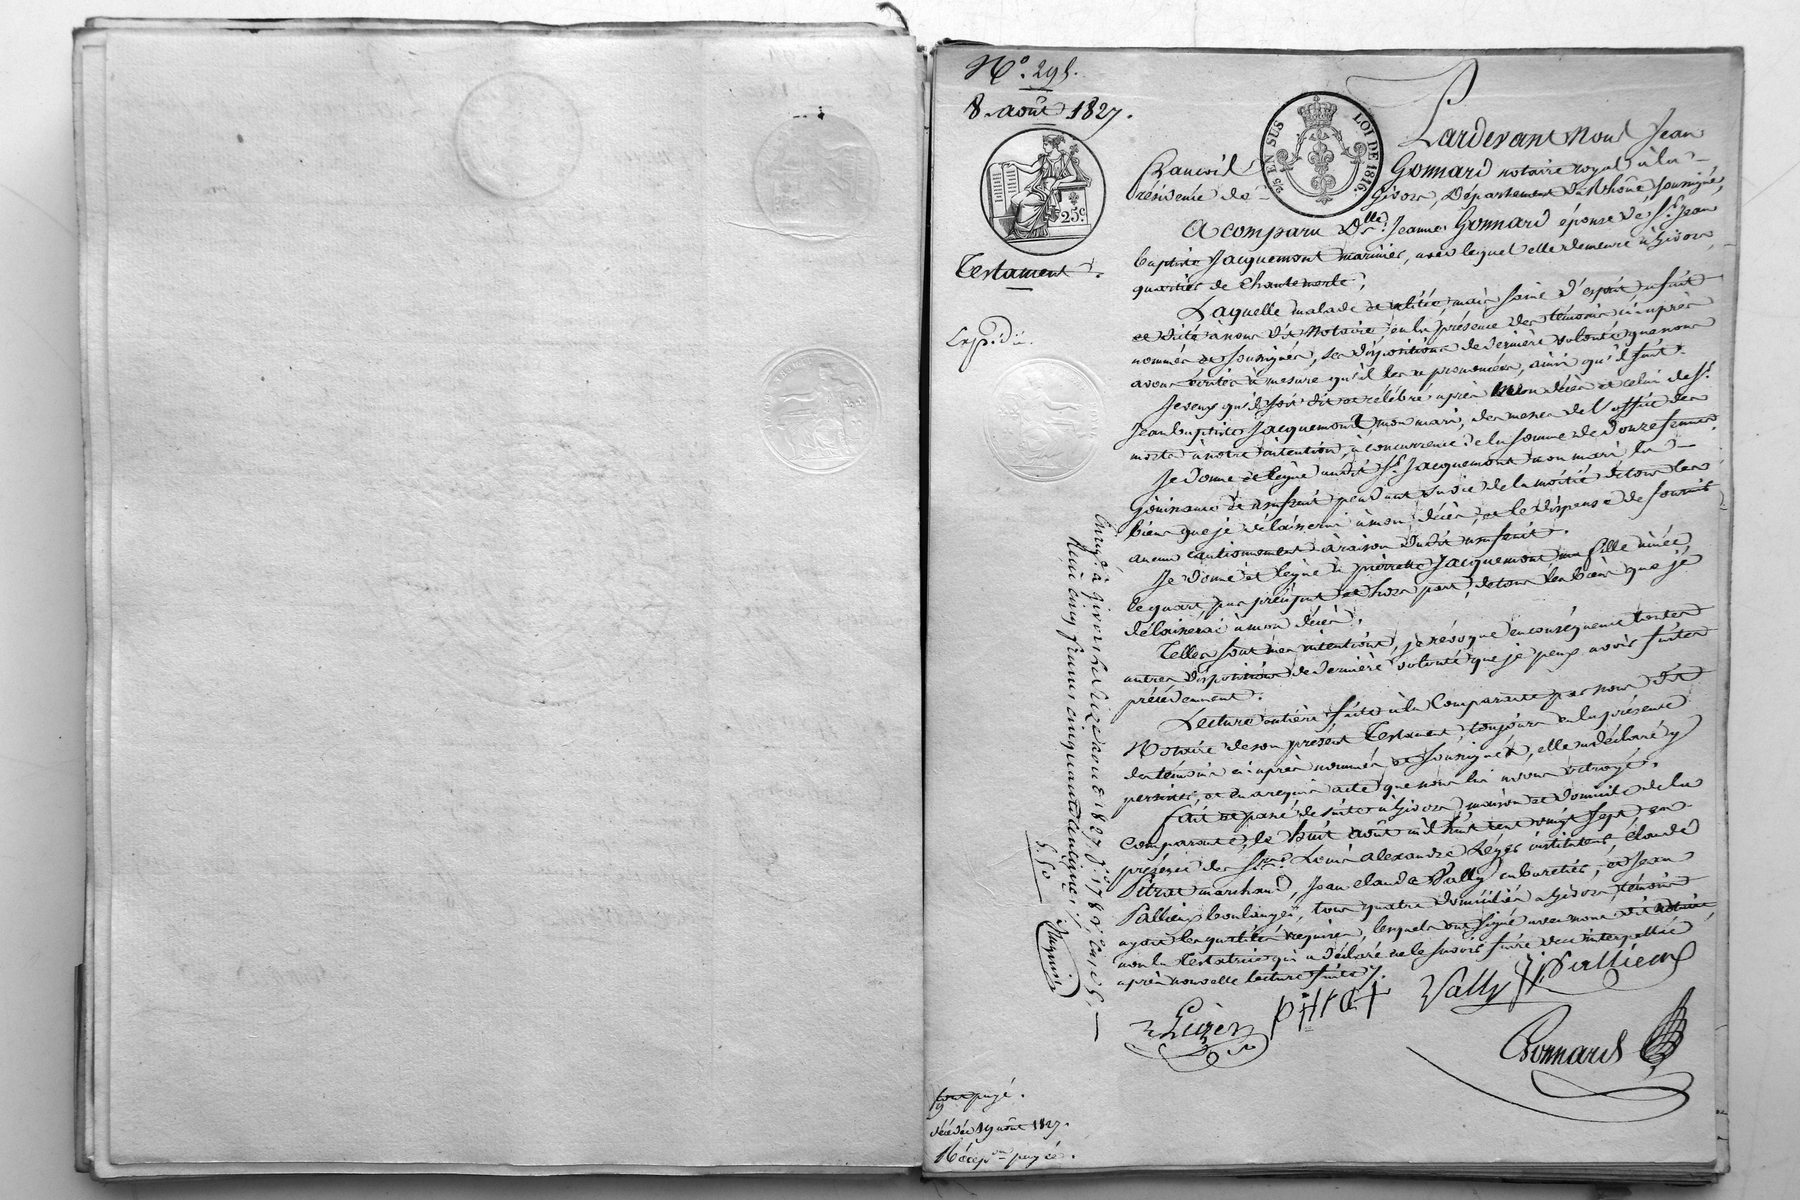 N.º 295.
8 août 1827.
25 c.
2/5 EN SUS
LOI DE 1816.
Testament.
Expédié.
Pardevant nous Jean
François Gonnard notaire royal à la
résidence de Givors, Département du Rhône soussigné,
A comparu D.lle Jeanne Gonnard épouse de S.r Jean
baptiste Jacquemont marinier, avec lequel elle demeure à Givors,
quartier de Chantemerle,
Laquelle malade et alitée, mais saine d'esprit a fait
et dicté à nous dit Notaire en la présence des témoins ci-après
nommés et soussignés, ses dispositions de dernière volonté que nous
avons écrites à mesure qu'il les a prononcées, ainsi qu'il suit:
Je veux qu'il soit dit et célébré après mon décès et celui de S.r
Jean baptiste Jacquemont, mon mari, des messes de l'office des
morts à notre intention, à concurrence de la somme de
Je donne et lègue audit S.r Jacquemont mon mari la
jouissance et usufruit pendant sa vie de la moitié de tous les
biens que je délaisserai à mon décès, et le dispense de fournir
aucun cautionnement à raison dudit usufruit.
Je donne et lègue à pierrette Jacquemont ma fille aînée
le quart, par préciput et hors part, de tous les biens que je
délaisserai à mon décès.
Telles sont mes intentions, je révoque en conséquence toutes
autres dispositions de dernière volonté que je peux avoir faites
précédemment.
Lecture entière faite à la Comparante par nous dit
Notaire de son présent Testament, toujours en la présence
des témoins ci-après nommés et soussignés, elle a déclaré y
persister, et en a requis acte que nous lui avons octroyé.
fait et passé de suite à Givors, maison et domicile de la
comparante, le huit août mil huit cent vingt sept, en
présence des S.rs Louis alexandre Léger instituteur, Claude
Pitrat marchand, Jean Claude Vally cabaretier, et Jean
Pallieux boulanger, tous quatre domiciliés à Givors, témoins
ayant les qualités requises, lesquels ont signé avec nous dit notaire,
non la testatrice qui a déclaré ne le savoir faire de ce interpellée
après nouvelle lecture faite.
Léger
pitrat
Vally
J. Pallieux
Gonnard
Enreg.é à Givors le dix août 1827, f.º 178
Reçu cinq francs cinquante centimes
5. 50
payé.
décédée 19 août 1827.
payée.